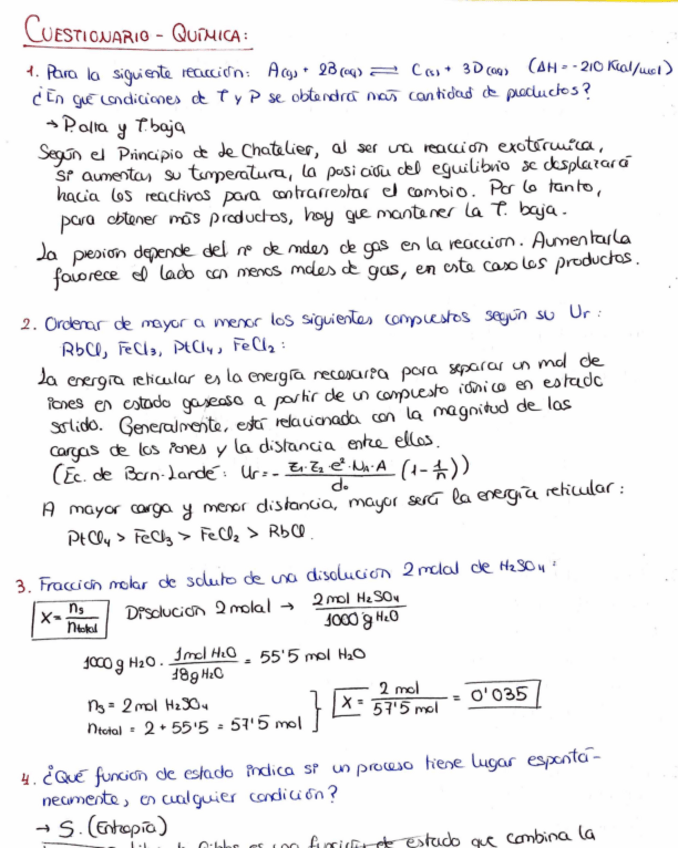 CUESTIONARIO - QUÍMICA:
1. Para la siguiente reacción: A(g) + 2B(aq) ⇌ C(s) + 3D(aq) (ΔH = -210 Kcal/mol)
¿En qué condiciones de T y P se obtendrá más cantidad de productos?
→ P alta y T baja
Según el Principio de Le Chatelier, al ser una reacción exotérmica,
si aumentas su temperatura, la posición del equilibrio se desplazará
hacia los reactivos para contrarrestar el cambio. Por lo tanto,
para obtener más productos, hay que mantener la T. baja.
La presión depende del nº de moles de gas en la reacción. Aumentarla
favorece el lado con menos moles de gas, en este caso los productos.
2. Ordenar de mayor a menor los siguientes compuestos según su Ur:
RbCl, FeCl3, PtCl4, FeCl2:
La energía reticular es la energía necesaria para separar un mol de
iones en estado gaseoso a partir de un compuesto iónico en estado
sólido. Generalmente, está relacionada con la magnitud de las
cargas de los iones y la distancia entre ellos.
(Ec. de Born-Landé: Ur = - Z1·Z2·e²·NA·A / d0 (1 - 1/n))
A mayor carga y menor distancia, mayor será la energía reticular:
PtCl4 > FeCl3 > FeCl2 > RbCl.
3. Fracción molar de soluto de una disolución 2 molal de H2SO4:
X = ns / ntotal Disolución 2 molal → 2 mol H2SO4 / 1000 g H2O
1000 g H2O · 1 mol H2O / 18 g H2O = 55'5 mol H2O
ns = 2 mol H2SO4
ntotal = 2 + 55'5 = 57'5 mol } X = 2 mol / 57'5 mol = 0'035
4. ¿Qué función de estado indica si un proceso tiene lugar espontá-
neamente, en cualquier condición?
→ S. (Entropía)
Gibbs es una función de estado que combina la